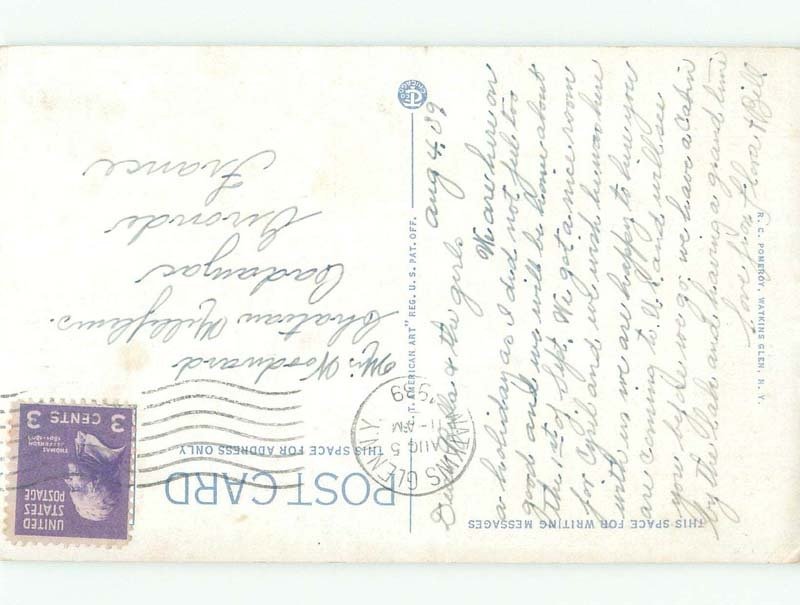 Aug 4, 39
Dear & the girls
We are here on
a holiday as I did not feel too
good and we will be home about
the 1st of Sept. We got a nice room
for Cyril and we wish he was here
with us we are happy to hear you
are coming to U.S. and will see
you before we go we have a Cabin
by the Lake and having a grand time
Love from Flora & Bill
Mrs Woodward
Chateau Millefleurs.
Cadaujac
Gironde
France
POST CARD
THIS SPACE FOR ADDRESS ONLY
THIS SPACE FOR WRITING MESSAGES
R. C. POMEROY, WATKINS GLEN, N. Y.
"C. T. AMERICAN ART" REG. U. S. PAT. OFF.
WATKINS GLEN, N.Y.
AUG 5
11 - AM
1939
UNITED
STATES
POSTAGE
THOMAS
JEFFERSON
1801-1809
3 CENTS 3